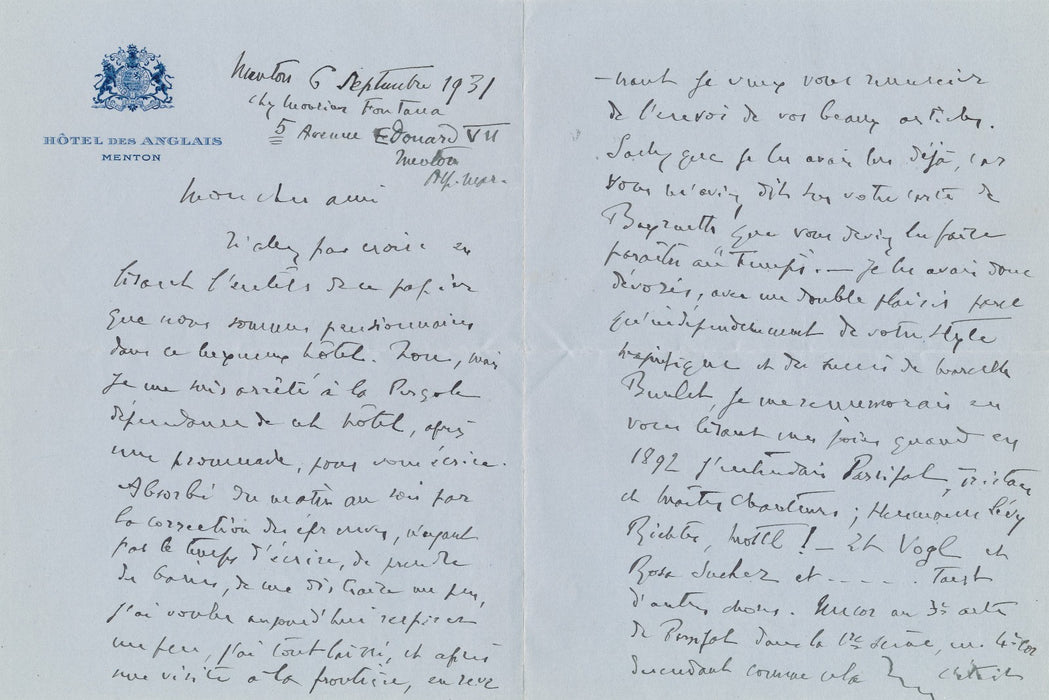 HÔTEL DES ANGLAIS
MENTON
Menton 6 Septembre 1931
chez Monsieur Fontana
5 Avenue Edouard VII
Menton
Alp. Mar.
Mon cher ami
N'allez pas croire en
lisant l'entête de ce papier
que nous sommes pensionnaires
dans ce luxueux hôtel. Non, mais
je me suis arrêté à la Pergola
dépendance de cet hôtel, après
une promenade, pour vous écrire.
Absorbé du matin au soir par
la correction des épreuves, n'ayant
pas le temps d'écrire, de prendre
des bains, de me distraire un peu,
j'ai voulu aujourd'hui respirer
un peu, j'ai tout laissé, et après
une visite à la frontière, en reve
-nant je veux vous remercier
de l'envoi de vos beaux articles.
Sachez que je les avais lus déjà, car
vous m'aviez dit sur votre carte de
Bayreuth que vous deviez les faire
paraître au "Temps". — Je les avais donc
dévorés, avec un double plaisir parce
qu'indépendamment de votre style
magnifique et du succès de Marcelle
Bunlet, je me remémorais en
vous lisant mes joies quand en
1892 j'entendais Parsifal, Tristan
et Maîtres Chanteurs ; Hermann Lévy
Richter, Mottl ! — Et Vogl et
Rosa Sucher et - - - - . Tant
d'autres choses. Encor au 3e acte
de Parsifal dans la 1re scène, un
descendant comme cela